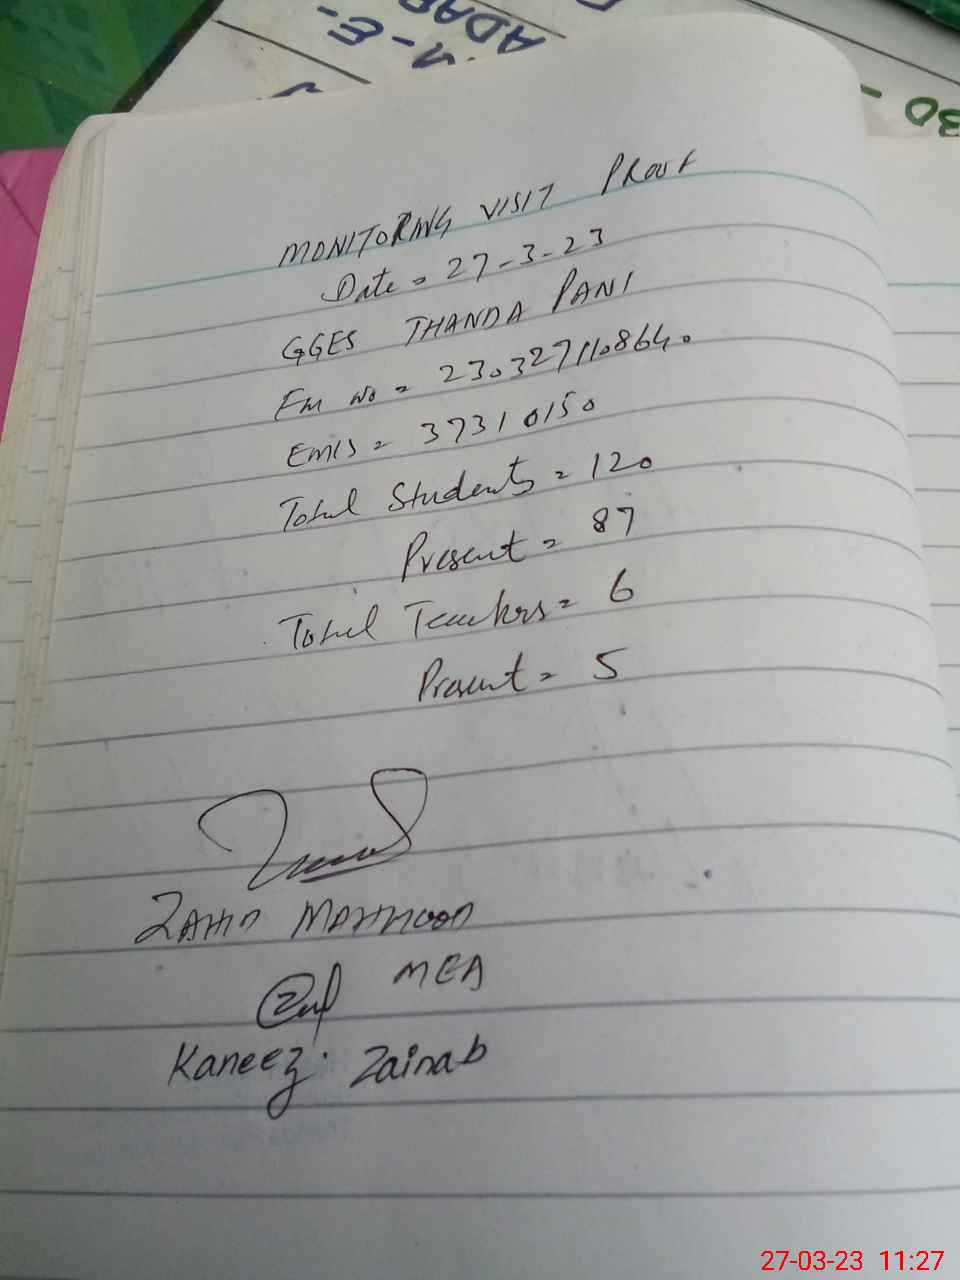 MONITORING VISIT PROOF
Date = 27-3-23
GGES THANDA PANI
Em no = 230327110864.
EMIS = 37310150
Total Students = 120
Present = 87
Total Teachers = 6
Present = 5
ZAHID MAHMOOD
MEA
Kaneez Zainab
27-03-23 11:27